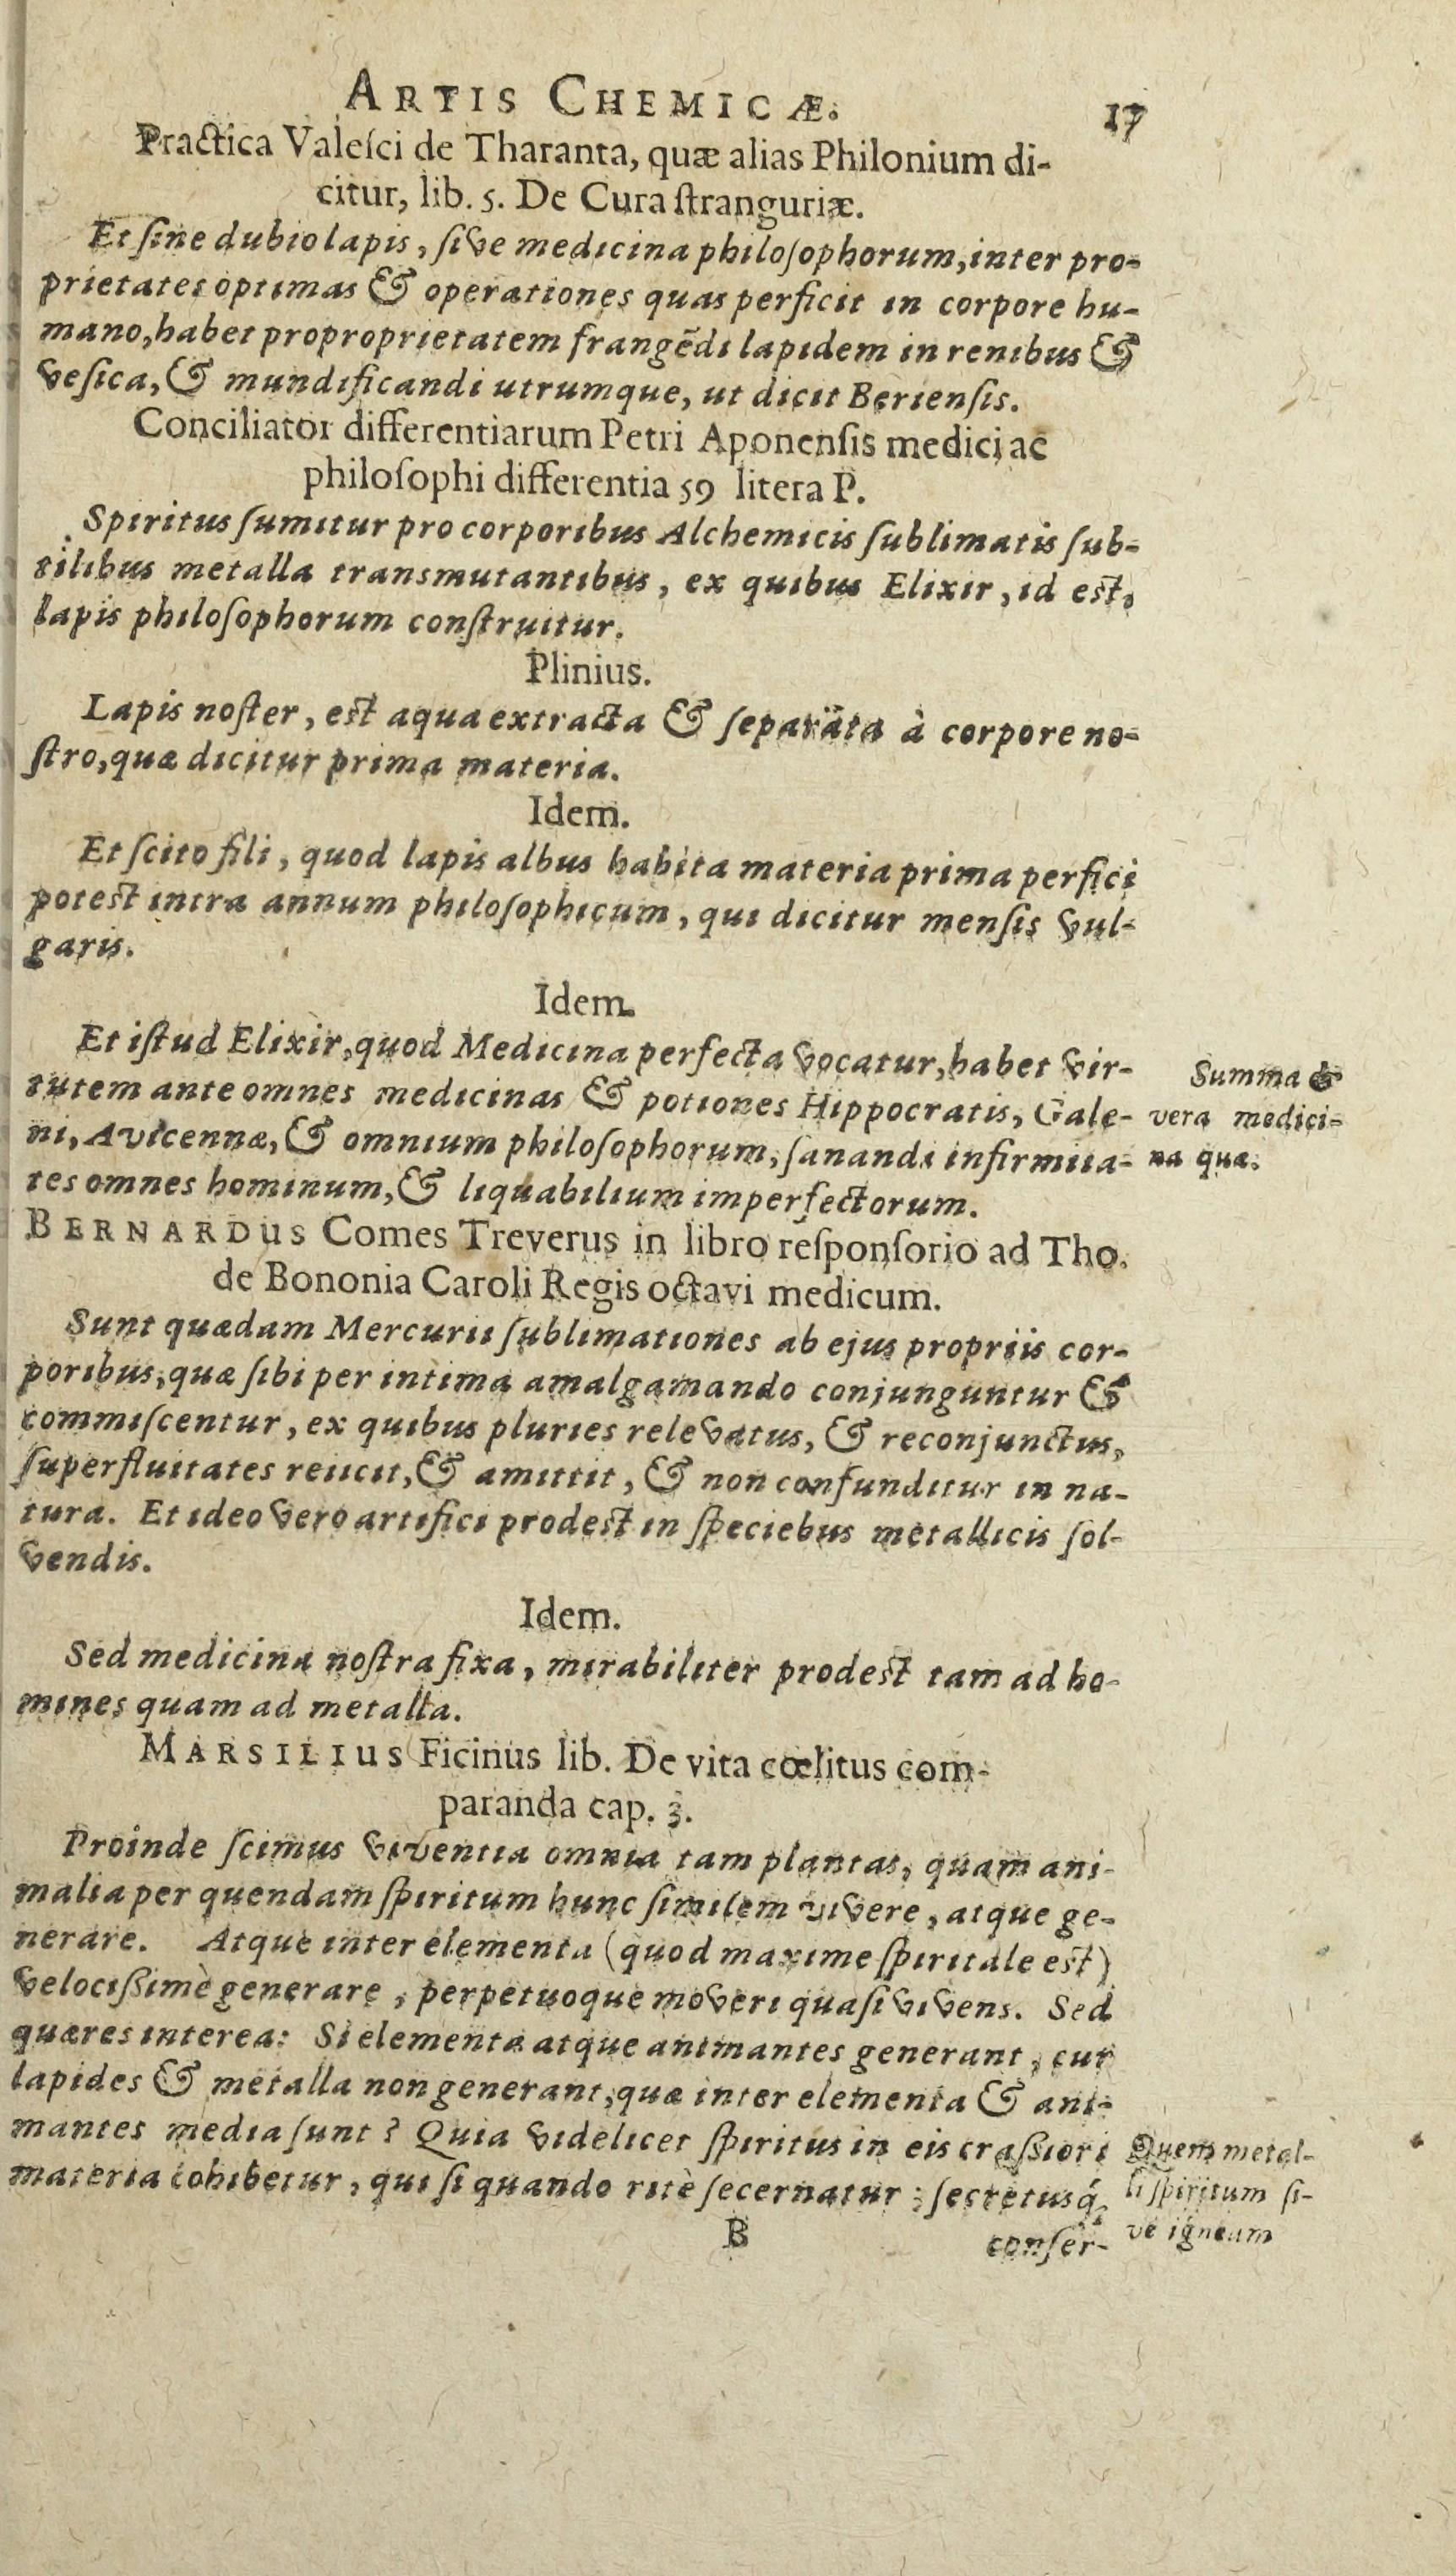 ARTIS CHEMICÆ. 17
Practica Valeſci de Tharanta, quæ alias Philonium di-
citur, lib. 5. De Cura ſtranguriæ.
Et ſine dubio lapis, ſive medicina philoſophorum, inter pro-
prietates optimas & operationes quas perficit in corpore hu-
mano, habet proproprietatem frangēdi lapidem in renibus &
veſica, & mundificandi utrumque, ut dicit Berienſis.
Conciliator differentiarum Petri Aponenſis medici ac
philoſophi differentia 59 litera P.
Spiritus ſumitur pro corporibus Alchemicis ſublimatis ſub-
tilibus metalla transmutantibus, ex quibus Elixir, id eſt,
lapis philoſophorum conſtruitur.
Plinius.
Lapis noſter, eſt aqua extracta & ſeparata à corpore no-
ſtro, quæ dicitur prima materia.
Idem.
Et ſcito fili, quod lapis albus habita materia prima perfici
poteſt intra annum philoſophicum, qui dicitur menſis vul-
garis.
Idem.
Et iſtud Elixir, quod Medicina perfecta vocatur, habet vir-
tutem ante omnes medicinas & potiones Hippocratis, Gale-
ni, Avicennæ, & omnium philoſophorum, ſanandi infirmita-
tes omnes hominum, & liquabilium imperfectorum.
Summa &
vera medici-
na quæ.
BERNARDUS Comes Treverus in libro reſponſorio ad Tho.
de Bononia Caroli Regis octavi medicum.
Sunt quædam Mercurii ſublimationes ab ejus propriis cor-
poribus, quæ ſibi per intima amalgamando conjunguntur &
commiſcentur, ex quibus pluries relevatus, & reconjunctus,
ſuperfluitates reiicit, & amittit, & non confunditur in na-
tura. Et ideo vero artifici prodeſt in ſpeciebus metallicis ſol-
vendis.
Idem.
Sed medicina noſtra fixa, mirabiliter prodeſt tam ad ho-
mines quam ad metalla.
MARSILIUS Ficinus lib. De vita cœlitus com-
paranda cap. 3.
Proinde ſcimus viventia omnia tam plantas, quam ani-
malia per quendam ſpiritum hunc ſimilem vivere, atque ge-
nerare. Atque inter elementa (quod maxime ſpiritale eſt)
velociſſimè generare, perpetuoque moveri quaſi vivens. Sed
quæres interea: Si elementa atque animantes generant, cur
lapides & metalla non generant, quæ inter elementa & ani-
mantes media ſunt? Quia videlicet ſpiritus in eis craſſiori
materia cohibetur, qui ſi quando ritè ſecernatur, ſecretusq́;
Quem metal-
li ſpiritum ſi-
ve igneum
B conſer-